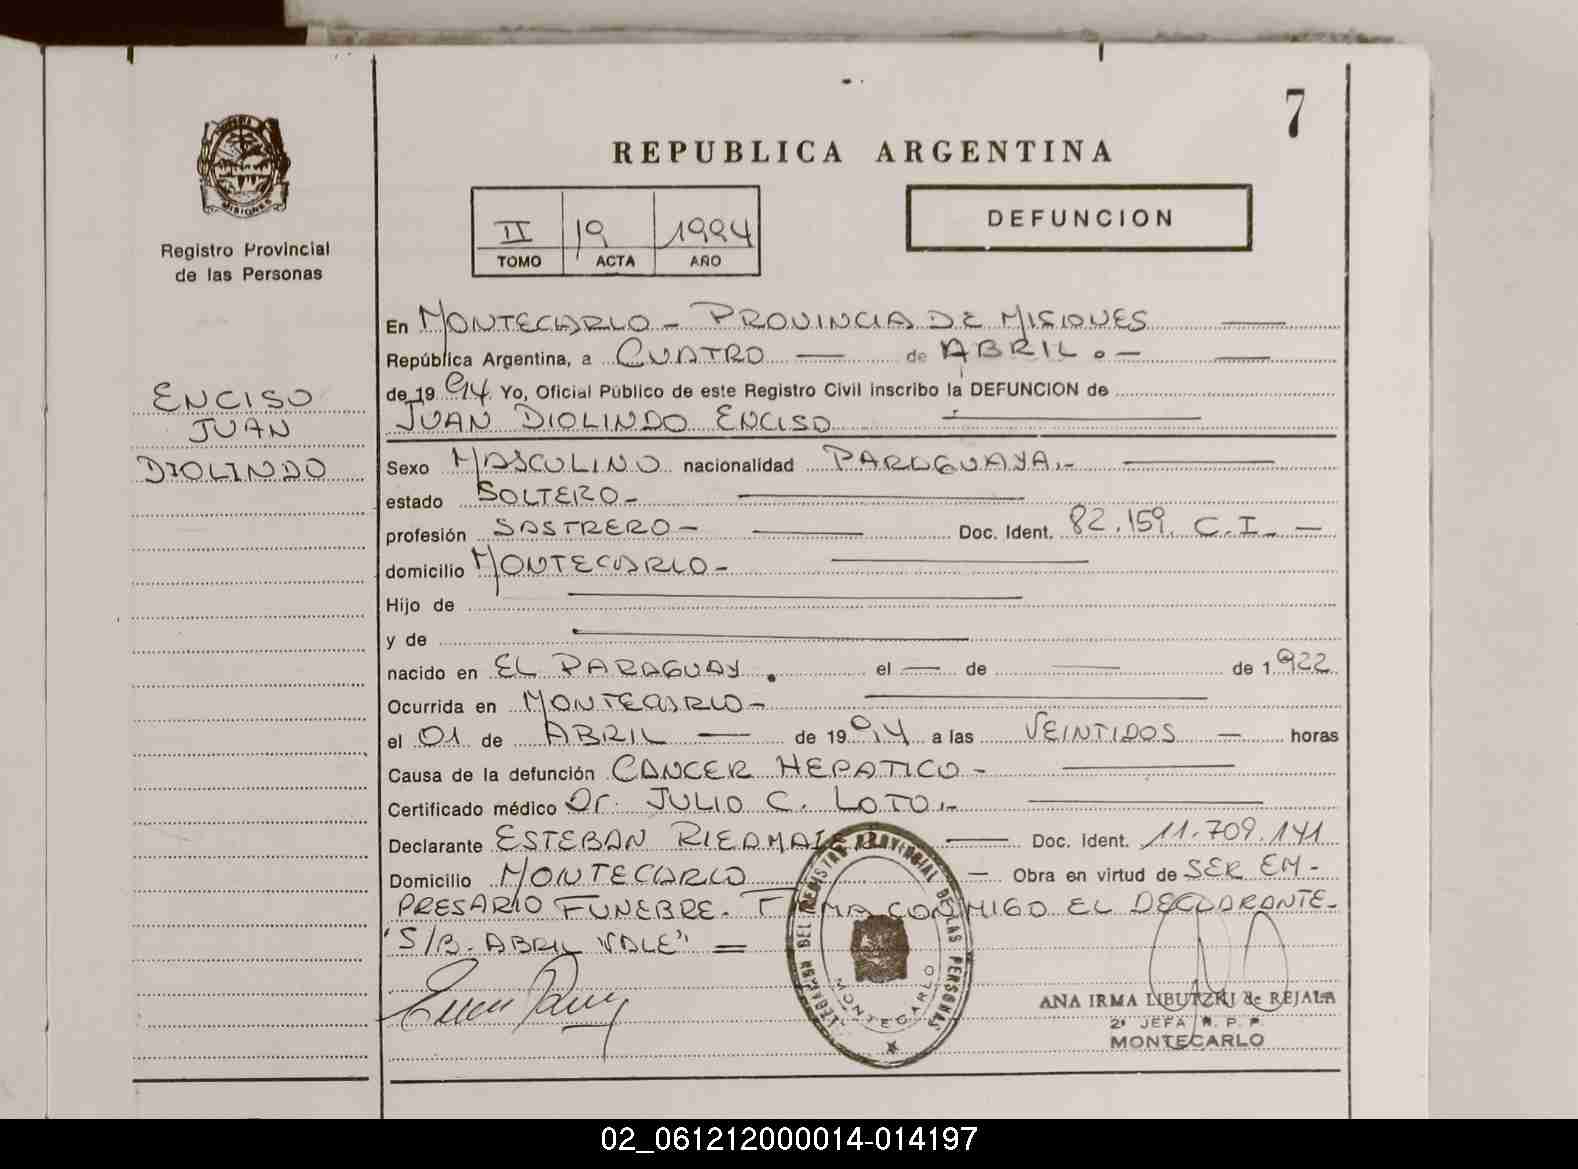 7
REPUBLICA ARGENTINA
MISIONES
Registro Provincial
de las Personas
II 19 1994
TOMO ACTA AÑO
DEFUNCION
ENCISO
JUAN
DIOLINDO
En MONTECARLO - PROVINCIA DE MISIONES
República Argentina, a CUATRO — de ABRIL. —
de 19 94 Yo, Oficial Público de este Registro Civil inscribo la DEFUNCION de
JUAN DIOLINDO ENCISO
Sexo MASCULINO nacionalidad PARAGUAYA.-
estado SOLTERO-
profesión SASTRERO- Doc. Ident. 82.159. C.I. —
domicilio MONTECARLO-
Hijo de
y de
nacido en EL PARAGUAY. el — de — de 1922
Ocurrida en MONTECARLO-
el 01 de ABRIL — de 19 94 a las VEINTIDOS — horas
Causa de la defunción CANCER HEPATICO -
Certificado médico Dr. JULIO C. LOTO.-
Declarante ESTEBAN RIEDMAIER — Doc. Ident. 11.709.141
Domicilio MONTECARLO — Obra en virtud de SER EM-
PRESARIO FUNEBRE. FIRMA CONMIGO EL DECLARANTE-
"S/B. ABRIL VALE" =
DEL REGISTRO PROVINCIAL DE LAS PERSONAS
MONTECARLO
ANA IRMA LIBUTZKI de REJALA
2ª JEFA R. P. P.
MONTECARLO
02_061212000014-014197